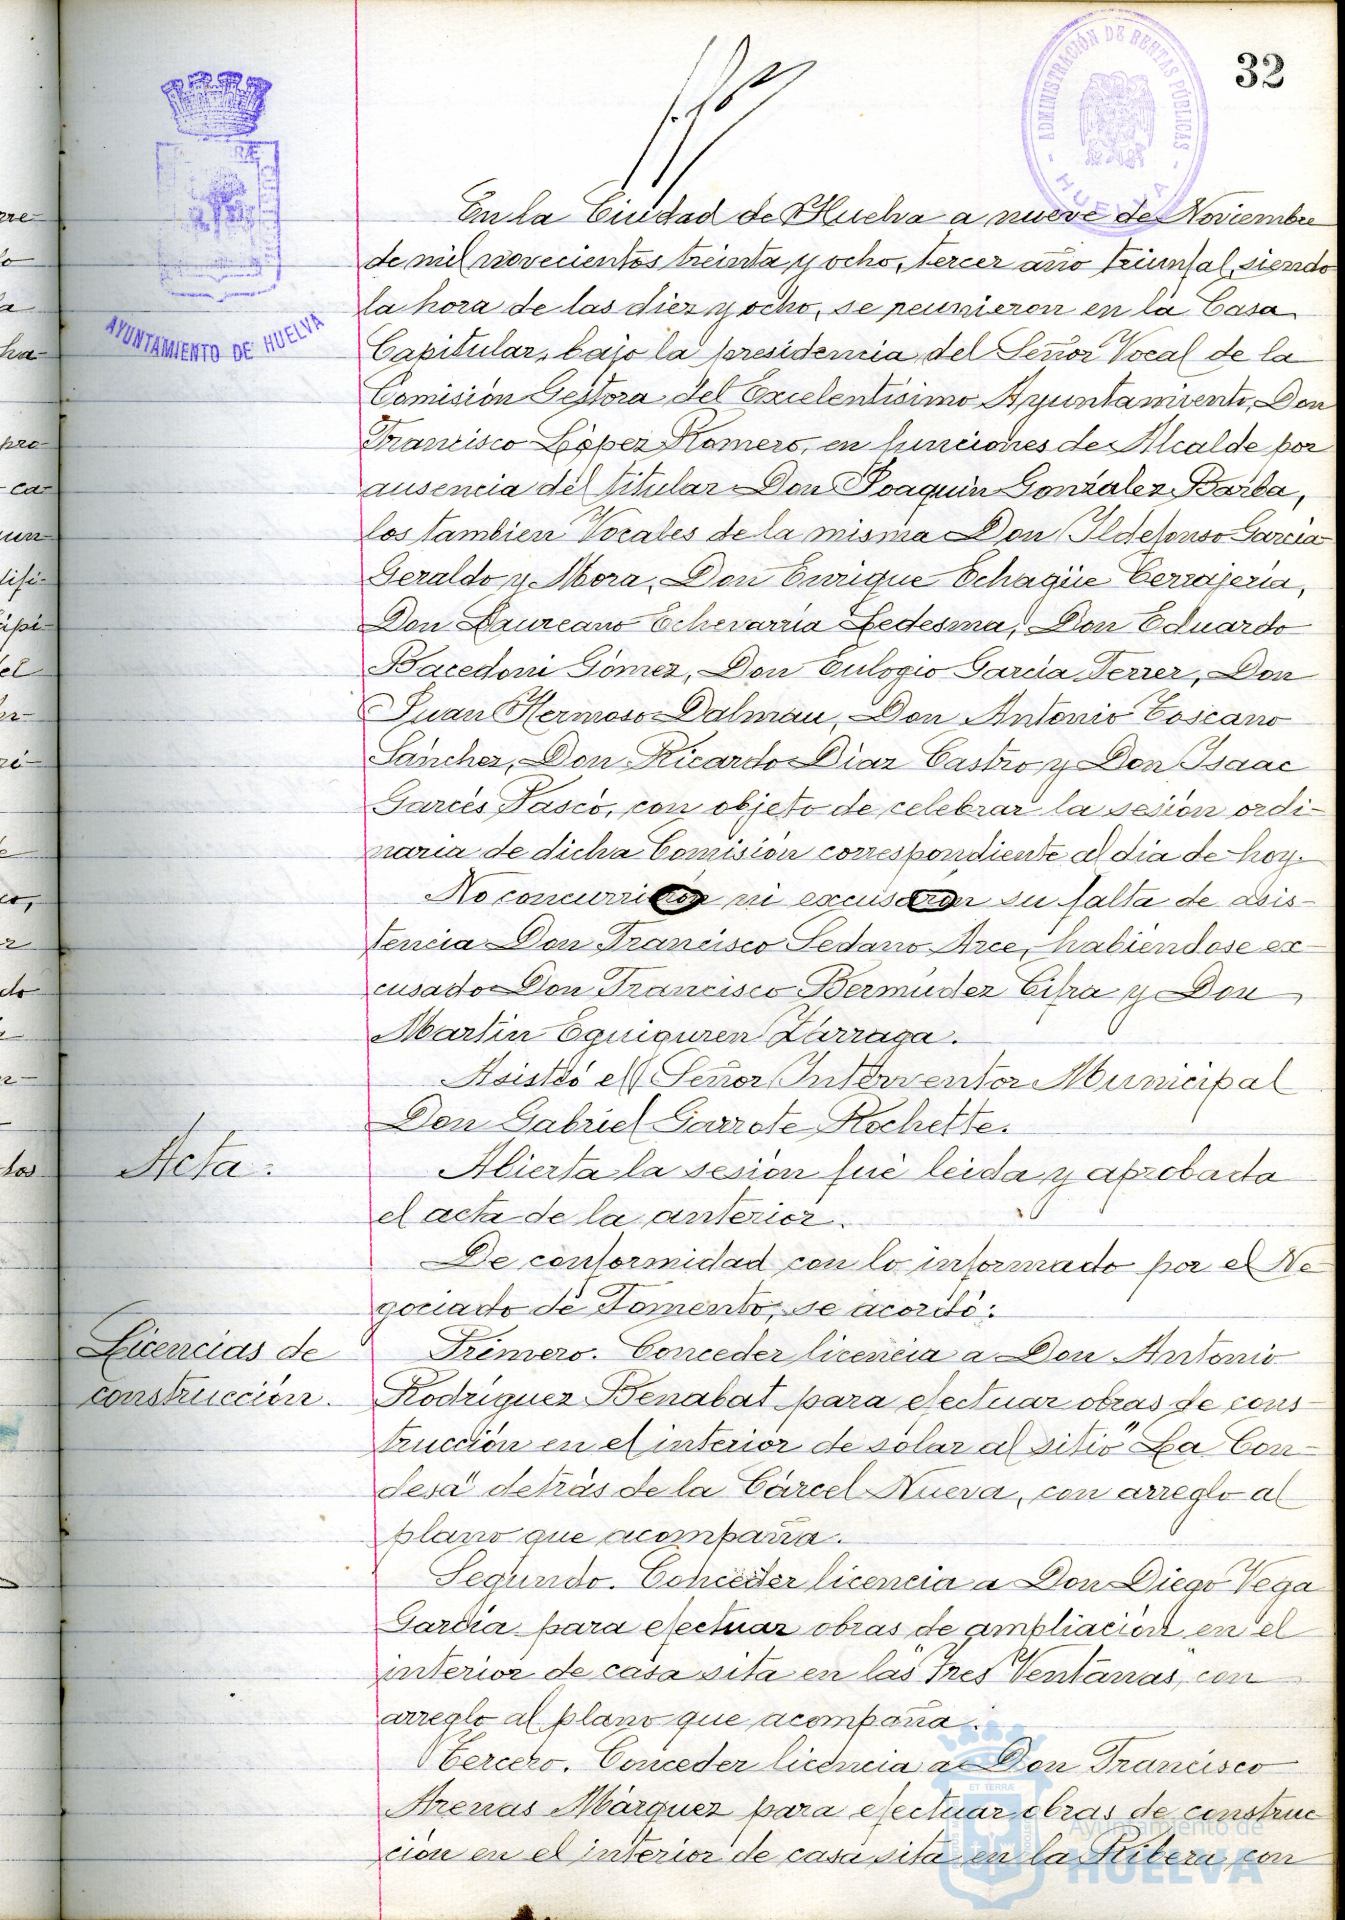 32
ADMINISTRACIÓN DE RENTAS PÚBLICAS
HUELVA
AYUNTAMIENTO DE HUELVA
En la Ciudad de Huelva a nueve de Noviembre
de mil novecientos treinta y ocho, tercer año triunfal, siendo
la hora de las diez y ocho, se reunieron en la Casa
Capitular, bajo la presidencia del Señor Vocal de la
Comisión Gestora del Excelentísimo Ayuntamiento, Don
Francisco López Romero, en funciones de Alcalde por
ausencia del titular Don Joaquín González Barba,
los tambien Vocales de la misma Don Ildefonso García
Geraldo y Mora, Don Enrique Echagüe Cerrajería,
Don Laureano Echevarría Ledesma, Don Eduardo
Bacedoni Gómez, Don Eulogio García Ferrer, Don
Juan Hermoso Dalmau, Don Antonio Toscano
Sánchez, Don Ricardo Díaz Castro y Don Isaac
Garcés Pascó, con objeto de celebrar la sesión ordi-
naria de dicha Comisión correspondiente al dia de hoy.
No concurrieron ni excusaron su falta de asis-
tencia Don Francisco Sedano Arce, habiéndose ex-
cusado Don Francisco Bermúdez Cifra y Don
Martín Eguiguren Zárraga.
Asistió el Señor Interventor Municipal
Don Gabriel Garrote Rochette.
Acta.
Abierta la sesión fué leida y aprobada
el acta de la anterior.
De conformidad con lo informado por el Ne-
gociado de Fomento, se acordó:
Licencias de
construcción.
Primero. Conceder licencia a Don Antonio
Rodríguez Benabat para efectuar obras de cons-
trucción en el interior de solar al sitio "La Con-
desa" detrás de la Cárcel Nueva, con arreglo al
plano que acompaña.
Segundo. Conceder licencia a Don Diego Vega
García para efectuar obras de ampliación en el
interior de casa sita en las "Tres Ventanas", con
arreglo al plano que acompaña.
Tercero. Conceder licencia a Don Francisco
Arenas Márquez para efectuar obras de construc-
ción en el interior de casa sita en la Ribera, con
Ayuntamiento de
HUELVA